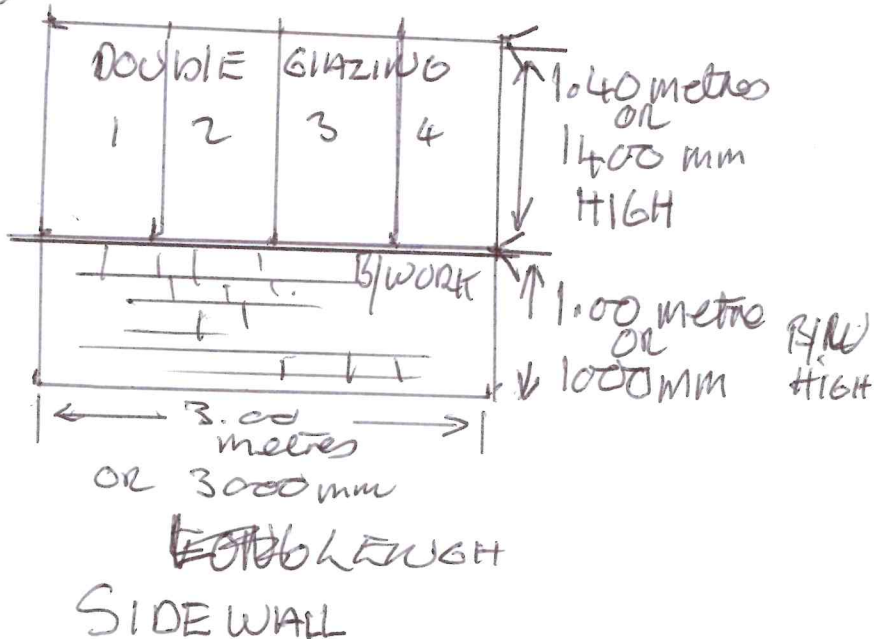 DOUBLE GLAZING
1 2 3 4
1.40 metres
OR
1400 mm
HIGH
B/WORK
1.00 metre
OR
1000mm
B/W
HIGH
3.00
metres
OR 3000mm
LENGH
SIDE WALL